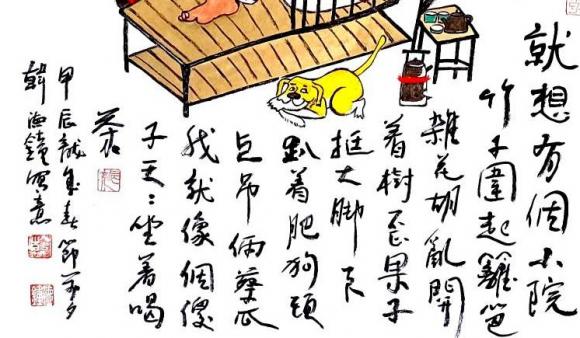 就想有個小院
竹子圍起籬笆
雜花胡亂開
着樹歪果子
挺大脚下
趴着肥狗頭
上吊俩瓜
我就像個傻
子天天坐着喝
茶
甲辰龍年春節前夕
韓海鐘寫意